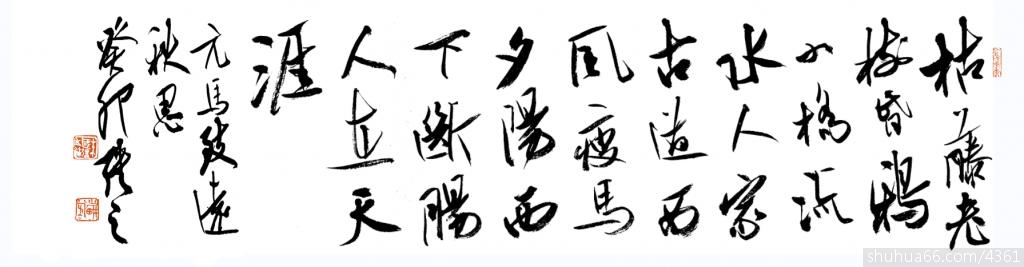 枯藤老
樹昏鴉
小橋流
水人家
古道西
風瘦馬
夕陽西
下斷腸
人在天
涯
元馬致遠
秋思
癸卯之
shuhua66.com/4361